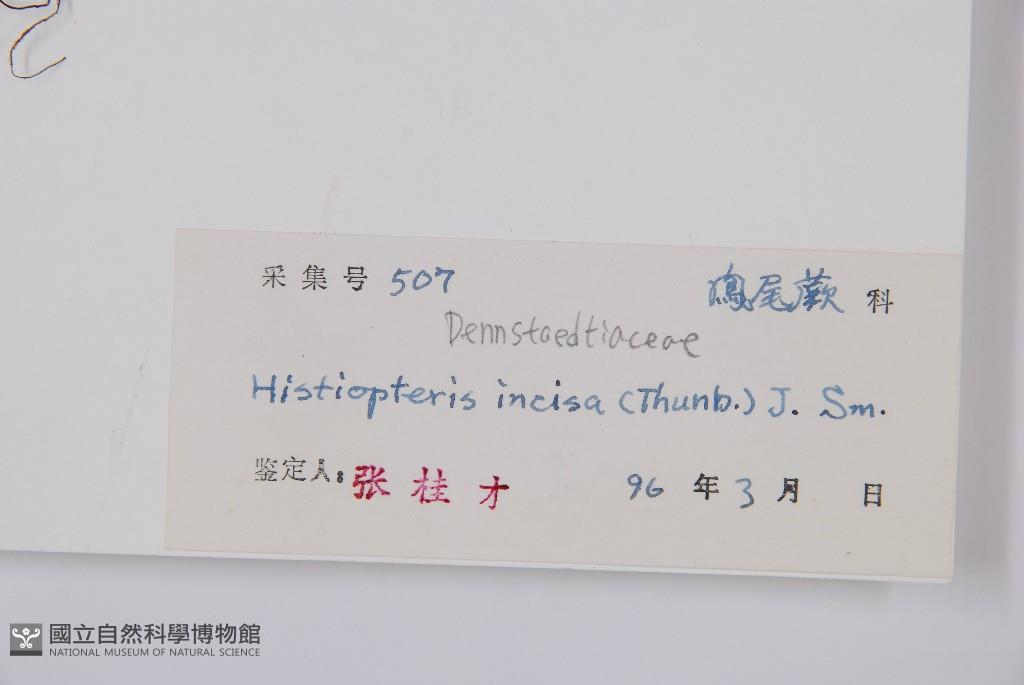 采集号 507 鳯尾蕨 科
Dennstaedtiaceae
Histiopteris incisa (Thunb.) J. Sm.
鉴定人: 张桂才 96 年 3 月 日
國立自然科學博物館
NATIONAL MUSEUM OF NATURAL SCIENCE